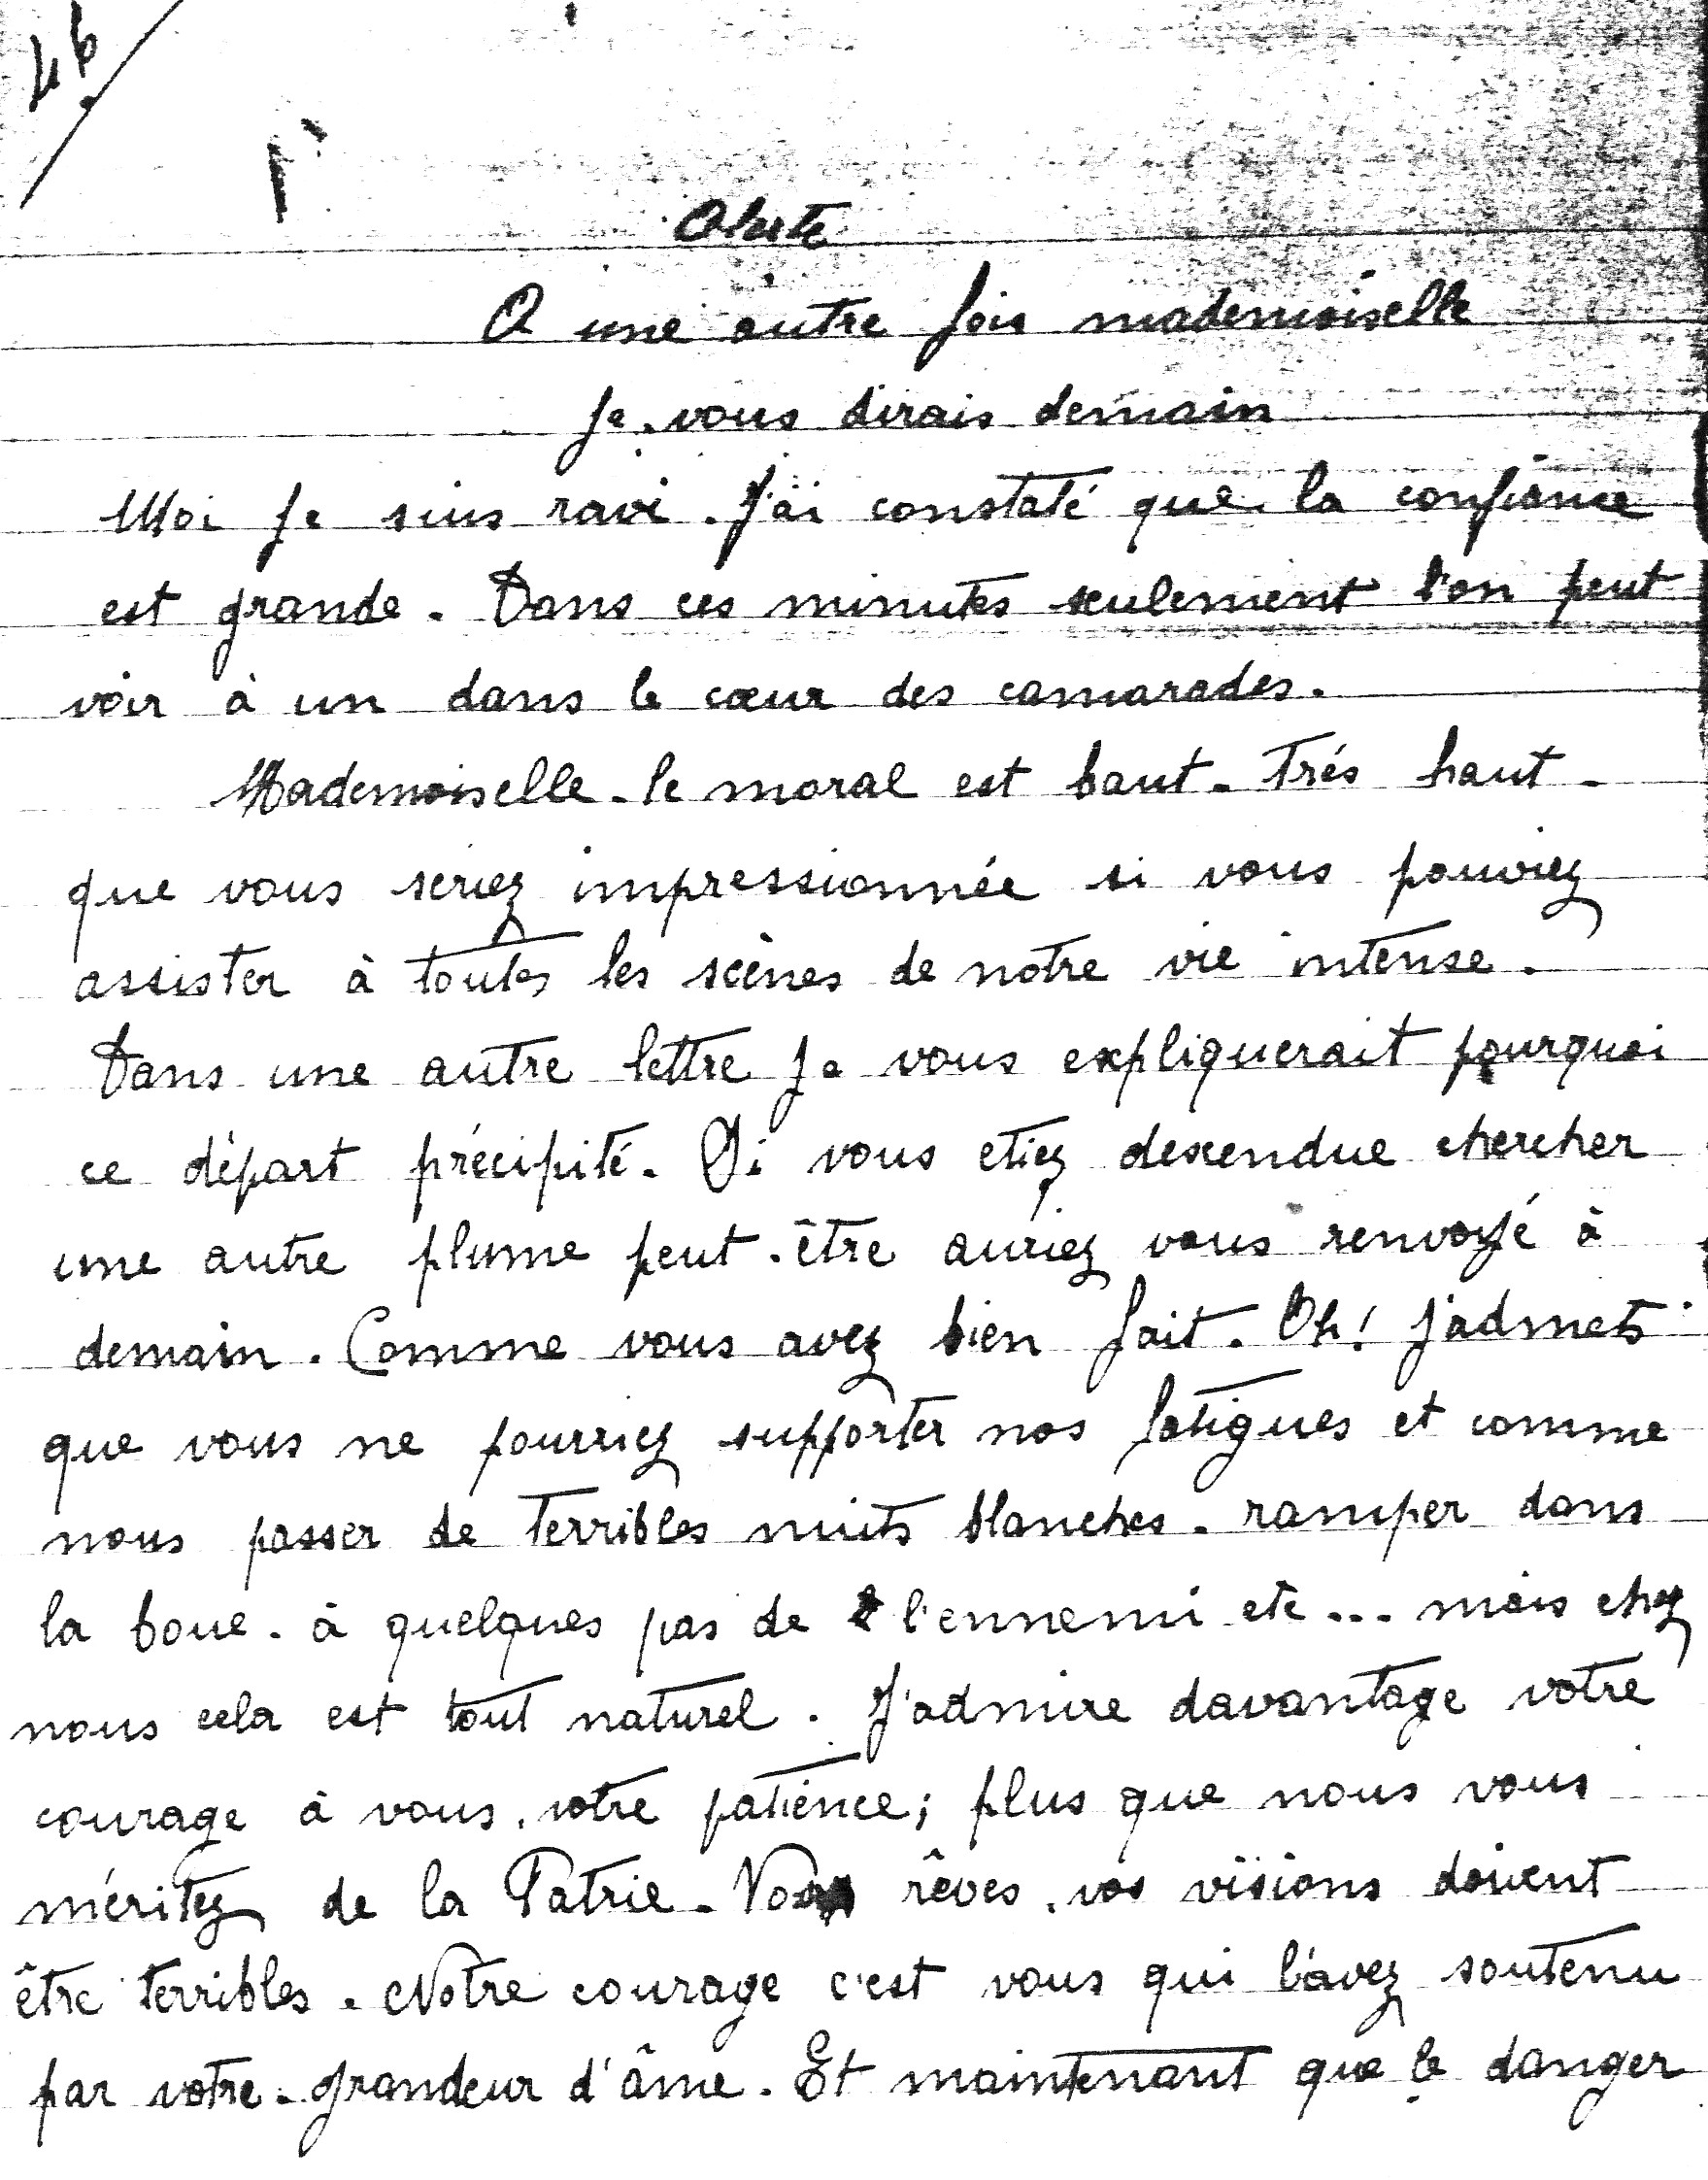 46
1°
Alerte
A une autre fois mademoiselle
Je vous dirais demain
Moi je suis ravi. J'ai constaté que la confiance
est grande. Dans ces minutes seulement l'on peut
voir à un dans le cœur des camarades.
Mademoiselle. le moral est haut. Trés haut.
que vous seriez impressionnée si vous pouviez
assister à toutes les scènes de notre vie intense.
Dans une autre lettre je vous expliquerait pourquoi
ce départ précipité. Si vous etiez descendue chercher
une autre plume peut-être auriez vous renvoyé à
demain. Comme vous avez bien fait. Oh! j'admets
que vous ne pourriez supporter nos fatigues et comme
nous passer de terribles nuits blanches. ramper dans
la boue. à quelques pas de l'ennemi etc... mais chez
nous cela est tout naturel. J'admire davantage votre
courage à vous, votre patience; plus que nous vous
méritez de la Patrie. Vos rêves, vos visions doivent
être terribles. Notre courage c'est vous qui l'avez soutenu
par votre grandeur d'âme. Et maintenant que le danger